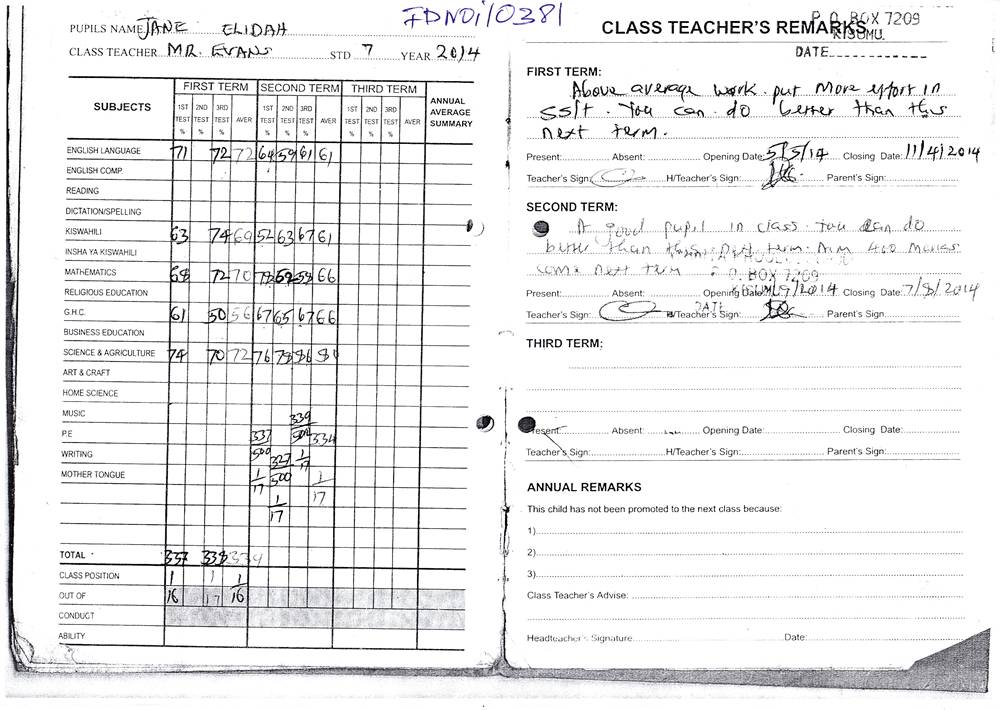 FDNDi/0381
PUPILS NAME JANE ELIDAH
CLASS TEACHER MR. EVANS STD 7 YEAR 2014
SUBJECTS FIRST TERM SECOND TERM THIRD TERM ANNUAL AVERAGE SUMMARY
1ST TEST % 2ND TEST % 3RD TEST % AVER 1ST TEST % 2ND TEST % 3RD TEST % AVER 1ST TEST % 2ND TEST % 3RD TEST % AVER
ENGLISH LANGUAGE 71 72 72 64 59 61 61
ENGLISH COMP.
READING
DICTATION/SPELLING
KISWAHILI 63 74 69 52 63 67 61
INSHA YA KISWAHILI
MATHEMATICS 68 72 70 66
RELIGIOUS EDUCATION
G.H.C. 61 50 56 67 65 67 66
BUSINESS EDUCATION
SCIENCE & AGRICULTURE 74 70 72 76 78 86 80
ART & CRAFT
HOME SCIENCE
MUSIC 339
P.E 337 500 334
WRITING 500 327 1/17
MOTHER TONGUE 1/17 500 1/17
1/17
TOTAL 337 338 334
CLASS POSITION 1 1 1
OUT OF 16 17 16
CONDUCT
ABILITY
CLASS TEACHER'S REMARKS
P. O. BOX 7209
KISUMU.
DATE
FIRST TERM:
Above average work. put More effort in
ss/t. You can do better than this
next term.
Present: Absent: Opening Date: 5/5/14 Closing Date: 11/4/2014
Teacher's Sign: H/Teacher's Sign: Parent's Sign:
SECOND TERM:
A good pupil in class. You can do
better than this next term. Aim 400 Marks
come next term
P. O. BOX 7209
Present: Absent: Opening Date: 9/2014 Closing Date: 7/8/2014
DATE
Teacher's Sign: H/Teacher's Sign: Parent's Sign:
THIRD TERM:
Present: Absent: Opening Date: Closing Date:
Teacher's Sign: H/Teacher's Sign: Parent's Sign:
ANNUAL REMARKS
This child has not been promoted to the next class because:
1)
2)
3)
Class Teacher's Advise:
Headteacher's Signature Date: